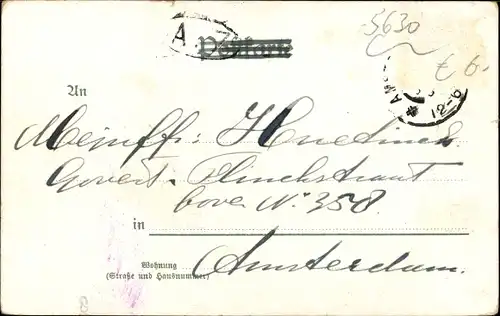 5630
A
Postkarte
€ 6.-
12-6
An
Mejuff:
Govert Flinckstraat
boven No. 358
in
Amsterdam.
Wohnung
(Straße und Hausnummer)